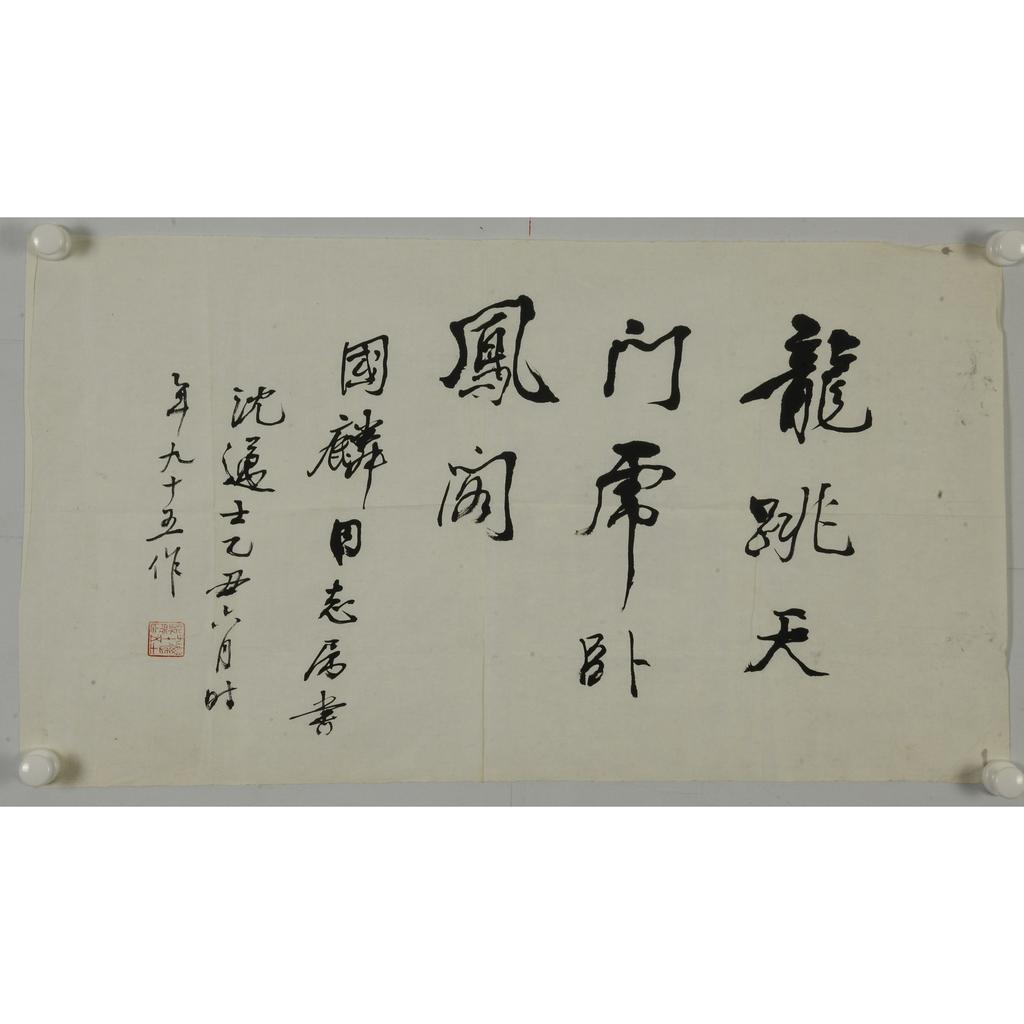 龍跳天
门虎卧
鳳阁
國麟同志属书
沈邁士乙丑六月时
年九十五作